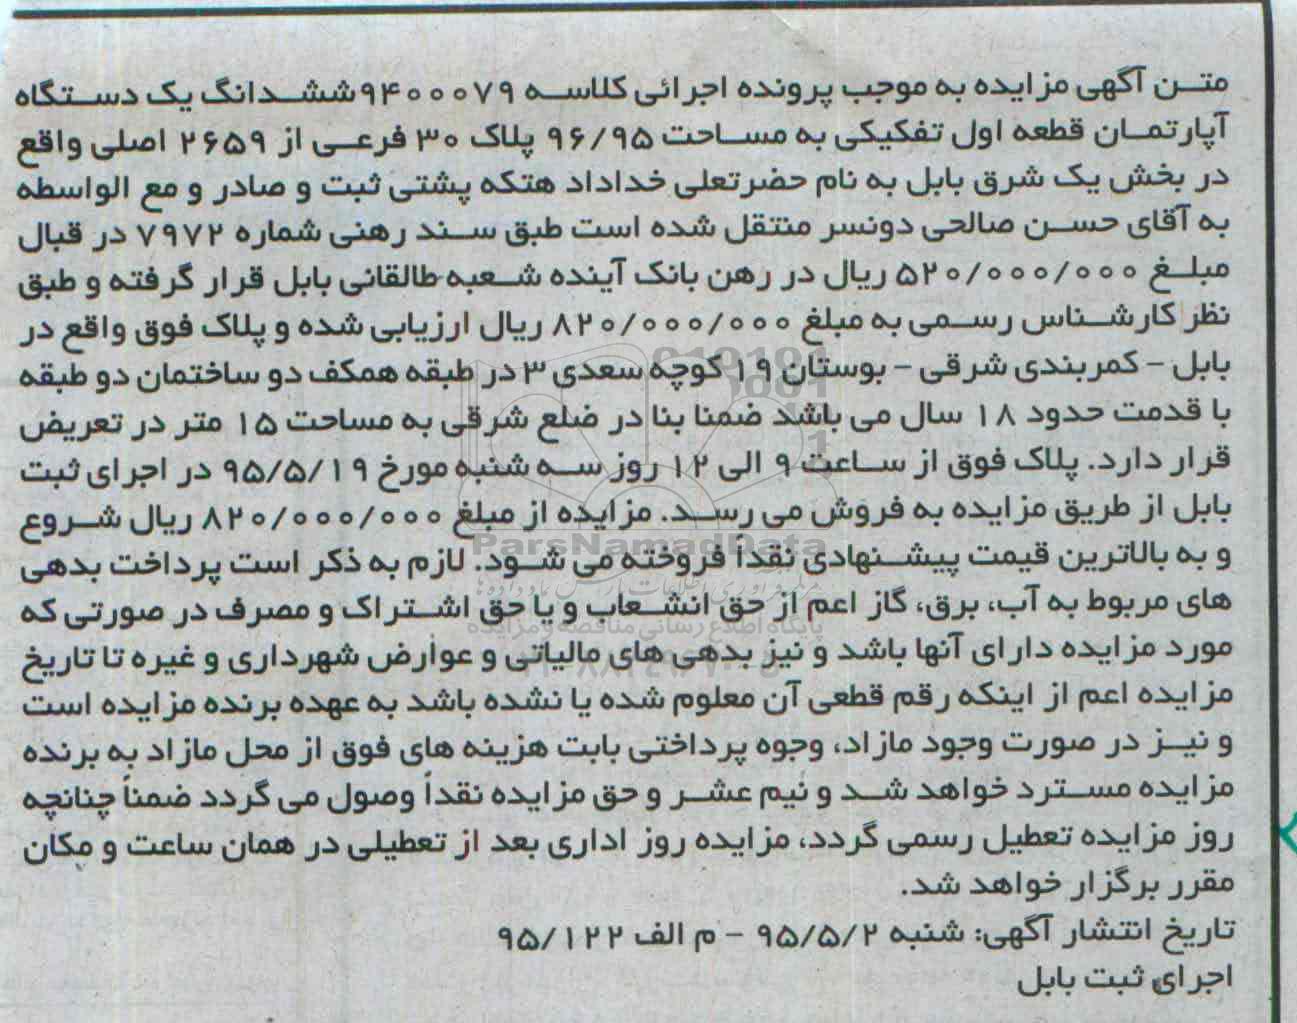 متن آگهی مزایده به موجب پرونده اجرائی کلاسه ۹۴۰۰۰۷۹ ششدانگ یک دستگاه
آپارتمان قطعه اول تفکیکی به مساحت ۹۶/۹۵ پلاک ۳۰ فرعی از ۲۶۵۹ اصلی واقع
در بخش یک شرق بابل به نام حضرتعلی خداداد هتکه پشتی ثبت و صادر و مع الواسطه
به آقای حسن صالحی دونسر منتقل شده است طبق سند رهنی شماره ۷۹۷۲ در قبال
مبلغ ۵۲۰/۰۰۰/۰۰۰ ریال در رهن بانک آینده شعبه طالقانی بابل قرار گرفته و طبق
نظر کارشناس رسمی به مبلغ ۸۲۰/۰۰۰/۰۰۰ ریال ارزیابی شده و پلاک فوق واقع در
بابل – کمربندی شرقی – بوستان ۱۹ کوچه سعدی ۳ در طبقه همکف دو ساختمان دو طبقه
با قدمت حدود ۱۸ سال می باشد ضمنا بنا در ضلع شرقی به مساحت ۱۵ متر در تعریض
قرار دارد. پلاک فوق از ساعت ۹ الی ۱۲ روز سه شنبه مورخ ۹۵/۵/۱۹ در اجرای ثبت
بابل از طریق مزایده به فروش می رسد. مزایده از مبلغ ۸۲۰/۰۰۰/۰۰۰ ریال شروع
و به بالاترین قیمت پیشنهادی نقدا فروخته می شود. لازم به ذکر است پرداخت بدهی
های مربوط به آب، برق، گاز اعم از حق انشعاب و یا حق اشتراک و مصرف در صورتی که
مورد مزایده دارای آنها باشد و نیز بدهی های مالیاتی و عوارض شهرداری و غیره تا تاریخ
مزایده اعم از اینکه رقم قطعی آن معلوم شده یا نشده باشد به عهده برنده مزایده است
و نیز در صورت وجود مازاد، وجوه پرداختی بابت هزینه های فوق از محل مازاد به برنده
مزایده مسترد خواهد شد و نیم عشر و حق مزایده نقداً وصول می گردد ضمناً چنانچه
روز مزایده تعطیل رسمی گردد، مزایده روز اداری بعد از تعطیلی در همان ساعت و مکان
مقرر برگزار خواهد شد.
تاریخ انتشار آگهی: شنبه ۹۵/۵/۲ – م الف ۹۵/۱۲۲
اجرای ثبت بابل
ParsNamadData
پایگاه اطلاع رسانی مناقصه و مزایده